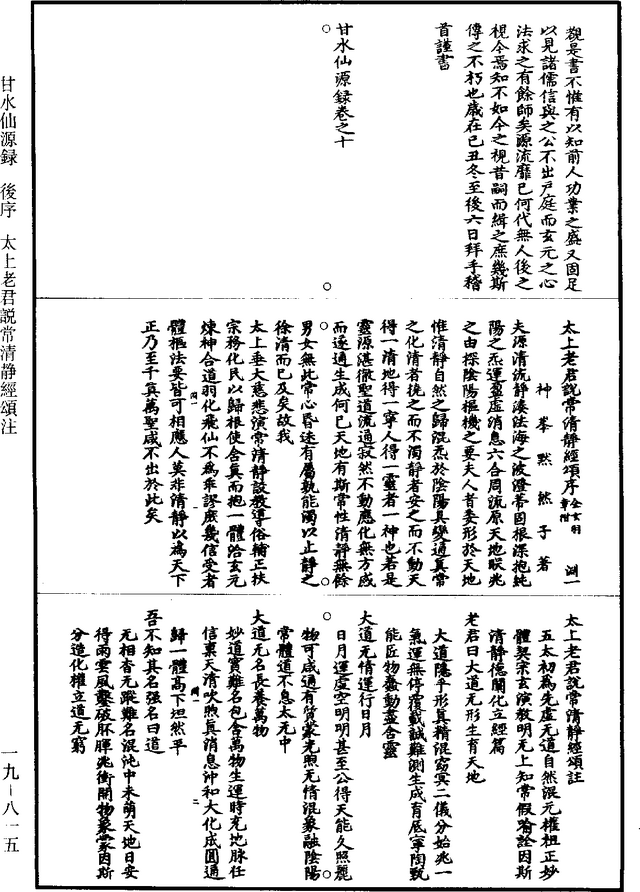 觀是書不惟有以知前人功業之盛又固足
以見諸儒信與之公不出戶庭而玄元之心
法求之有餘師矣源流靡已何代無人後之
視今焉知不如今之視昔嗣而緝之庶幾斯
傳之不朽也歲在己丑冬至後六日拜手稽
首謹書
甘水仙源録卷之十
太上老君說常清靜經頌序
神峯默然子著
夫源清流靜湊法海之波澄蒂固根深抱純
陽之炁運盈虛消息六合周流原天地眹兆
之由探陰陽樞機之要夫人者委形於天地
惟清靜自然之歸混炁於陰陽具變通真常
之化清者撓之而不濁靜者安之而不動天
得一清地得一寧人得一靈者一神也若是
靈源湛徹聖道流通寂然不動應化無方感
而遂通生成何已天地有斯常性清靜無餘
男女無此常心昏迷有屬孰能濁以止靜之
徐清而已及矣故我
太上垂大慈悲演常清靜設教導俗輪正扶
宗務化民以歸根使含真而抱一體洽玄元
煉神合道羽化飛仙不為乖謬庶幾信受者
體樞法要皆可相應人莫非清靜以為天下
正乃至千真萬聖咸不出於此矣
太上老君說常清靜經頌註
五太初為先虛无道自然混元權祖正妙
體契宗玄演教明无上知常假喻詮因斯
清靜德闡化立經篇
老君曰大道无形生育天地
大道隱乎形真精混窈冥二儀分始兆一
氣運無停覆載誠難測生成育底寧陶甄
能匠物蠢動盡含靈
大道无情運行日月
日月運虛空明明甚至公得天能久照麗
物可咸通有質蒙光照无情混象融陰陽
常體道不息太无中
大道无名長養萬物
妙道實難名包含萬物生運時充地脉任
信稟天清吹煦真消息沖和大化成圓通
歸一體高下坦然平
吾不知其名强名曰道
无相杳无蹤難名混沌中未萌天地日安
得雨雲風鑿破胚暉兆衝開物象蒙因斯
分造化權立道无窮
甘水仙源録　後序　太上老君説常清静經頌注
一九－八一五